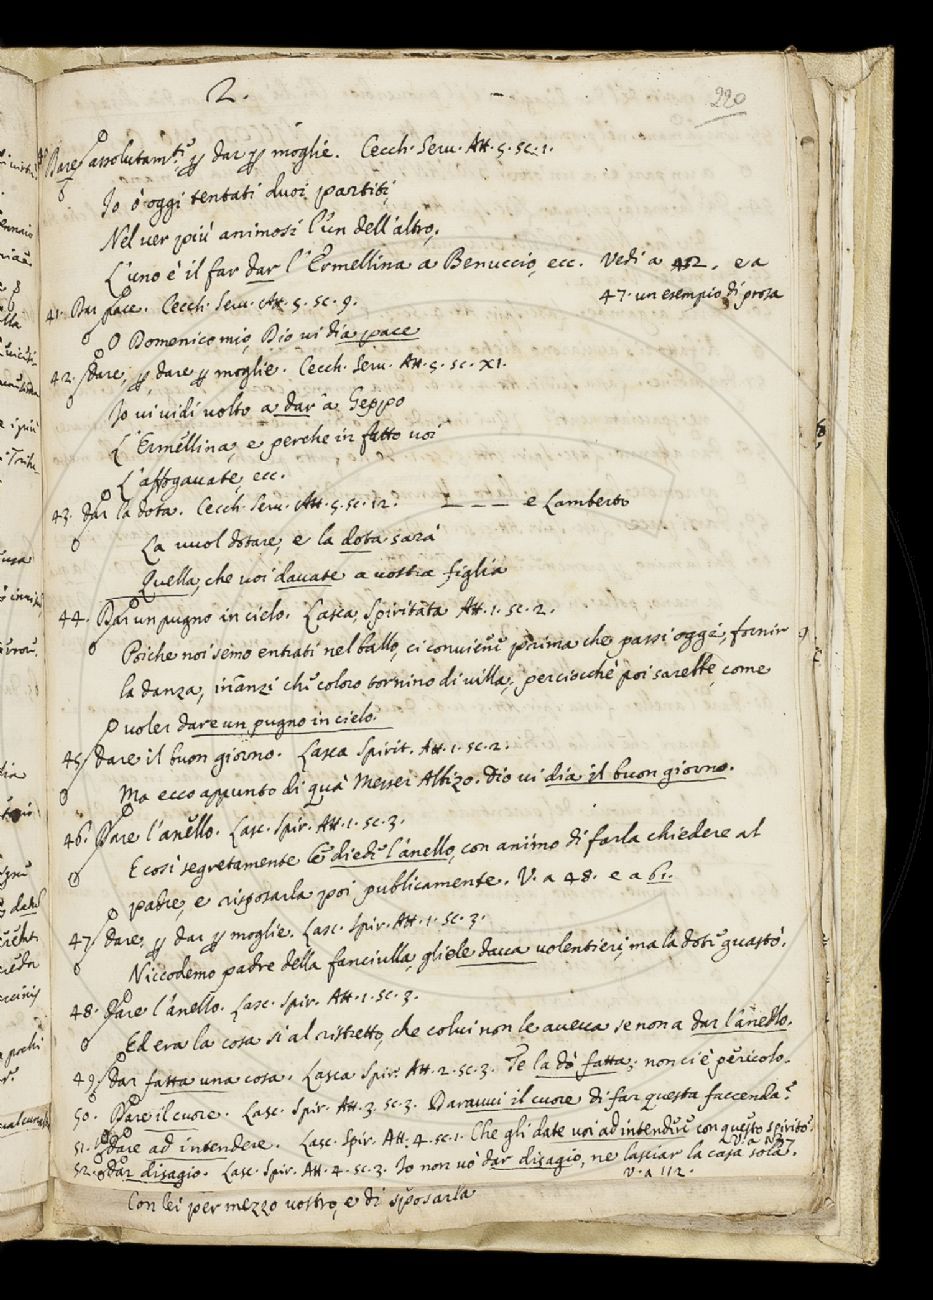 2.
220
Dare assolutam.te p dar p moglie. Cecch. Seru. Att. 5. sc. 1.
Io ò oggi tentati duoi partiti,
Nel uer più animosi l'un dell'altro,
L'uno è il far dar l'Ermellina a Benuccio, ecc. Vedi a 42. e a
47. un esempio di prosa
41. Dar pace. Cecch. Seru. Att. 5. sc. 9.
O Domenico mio, Dio ui dia pace
42. Dare, p dare p moglie. Cecch. Seru. Att. 5. sc. XI.
Io ui uidi uolto a dar a Geppo
L'Ermellina, e perche in fatto uoi
L'affogauate, ecc.
43. Dar la dota. Cecch. Seru. Att. 5. sc. 12. _ _ _ e Lamberto
La uuol dotare, e la dota sarà
Quella, che uoi dauate a uostra figlia
44. Dar un pugno in cielo. Lasca, Spiritata Att. 1. sc. 2.
Poiche noi semo entrati nel ballo, ci conuiene prima che passi oggi, fornir
la danza, inanzi che coloro tornino di uilla, perciocchè poi sarebbe, come
o uoler dare un pugno in cielo.
45. Dare il buon giorno. Lasca Spirit. Att. 1. sc. 2.
Ma ecco appunto di quà Messer Albizo. Dio ui dia il buon giorno.
46. Dare l'anello. Lasc. Spir. Att. 1. sc. 3.
E così segretamente le diede l'anello, con animo di farla chiedere al
padre, e risposarla poi publicamente. V. a 48. e a 61.
47. Dare, p dar p moglie. Lasc. Spir. Att. 1. sc. 3.
Niccodemo padre della fanciulla, gliele daua uolentieri, ma la dote guastò.
48. Dare l'anello. Lasc. Spir. Att. 1. sc. 3.
Ed era la cosa sì al ristretto, che colui non le aueua se non a dar l'anello.
49. Dar fatta una cosa. Lasca Spir. Att. 2. sc. 3. Te la dò fatta; non ci è pericolo.
50. Dare il cuore. Lasc. Spir. Att. 3. sc. 3. Darauui il cuore di far questa faccenda?
51. Dare ad intendere. Lasc. Spir. Att. 4. sc. 1. Che gli date uoi ad intendere con questo spirito?
52. Dar disagio. Lasc. Spir. Att. 4. sc. 3. Io non uò dar disagio, ne lasciar la casa sola.
V. a 112.
Con lei per mezzo uostro, e di sposarla